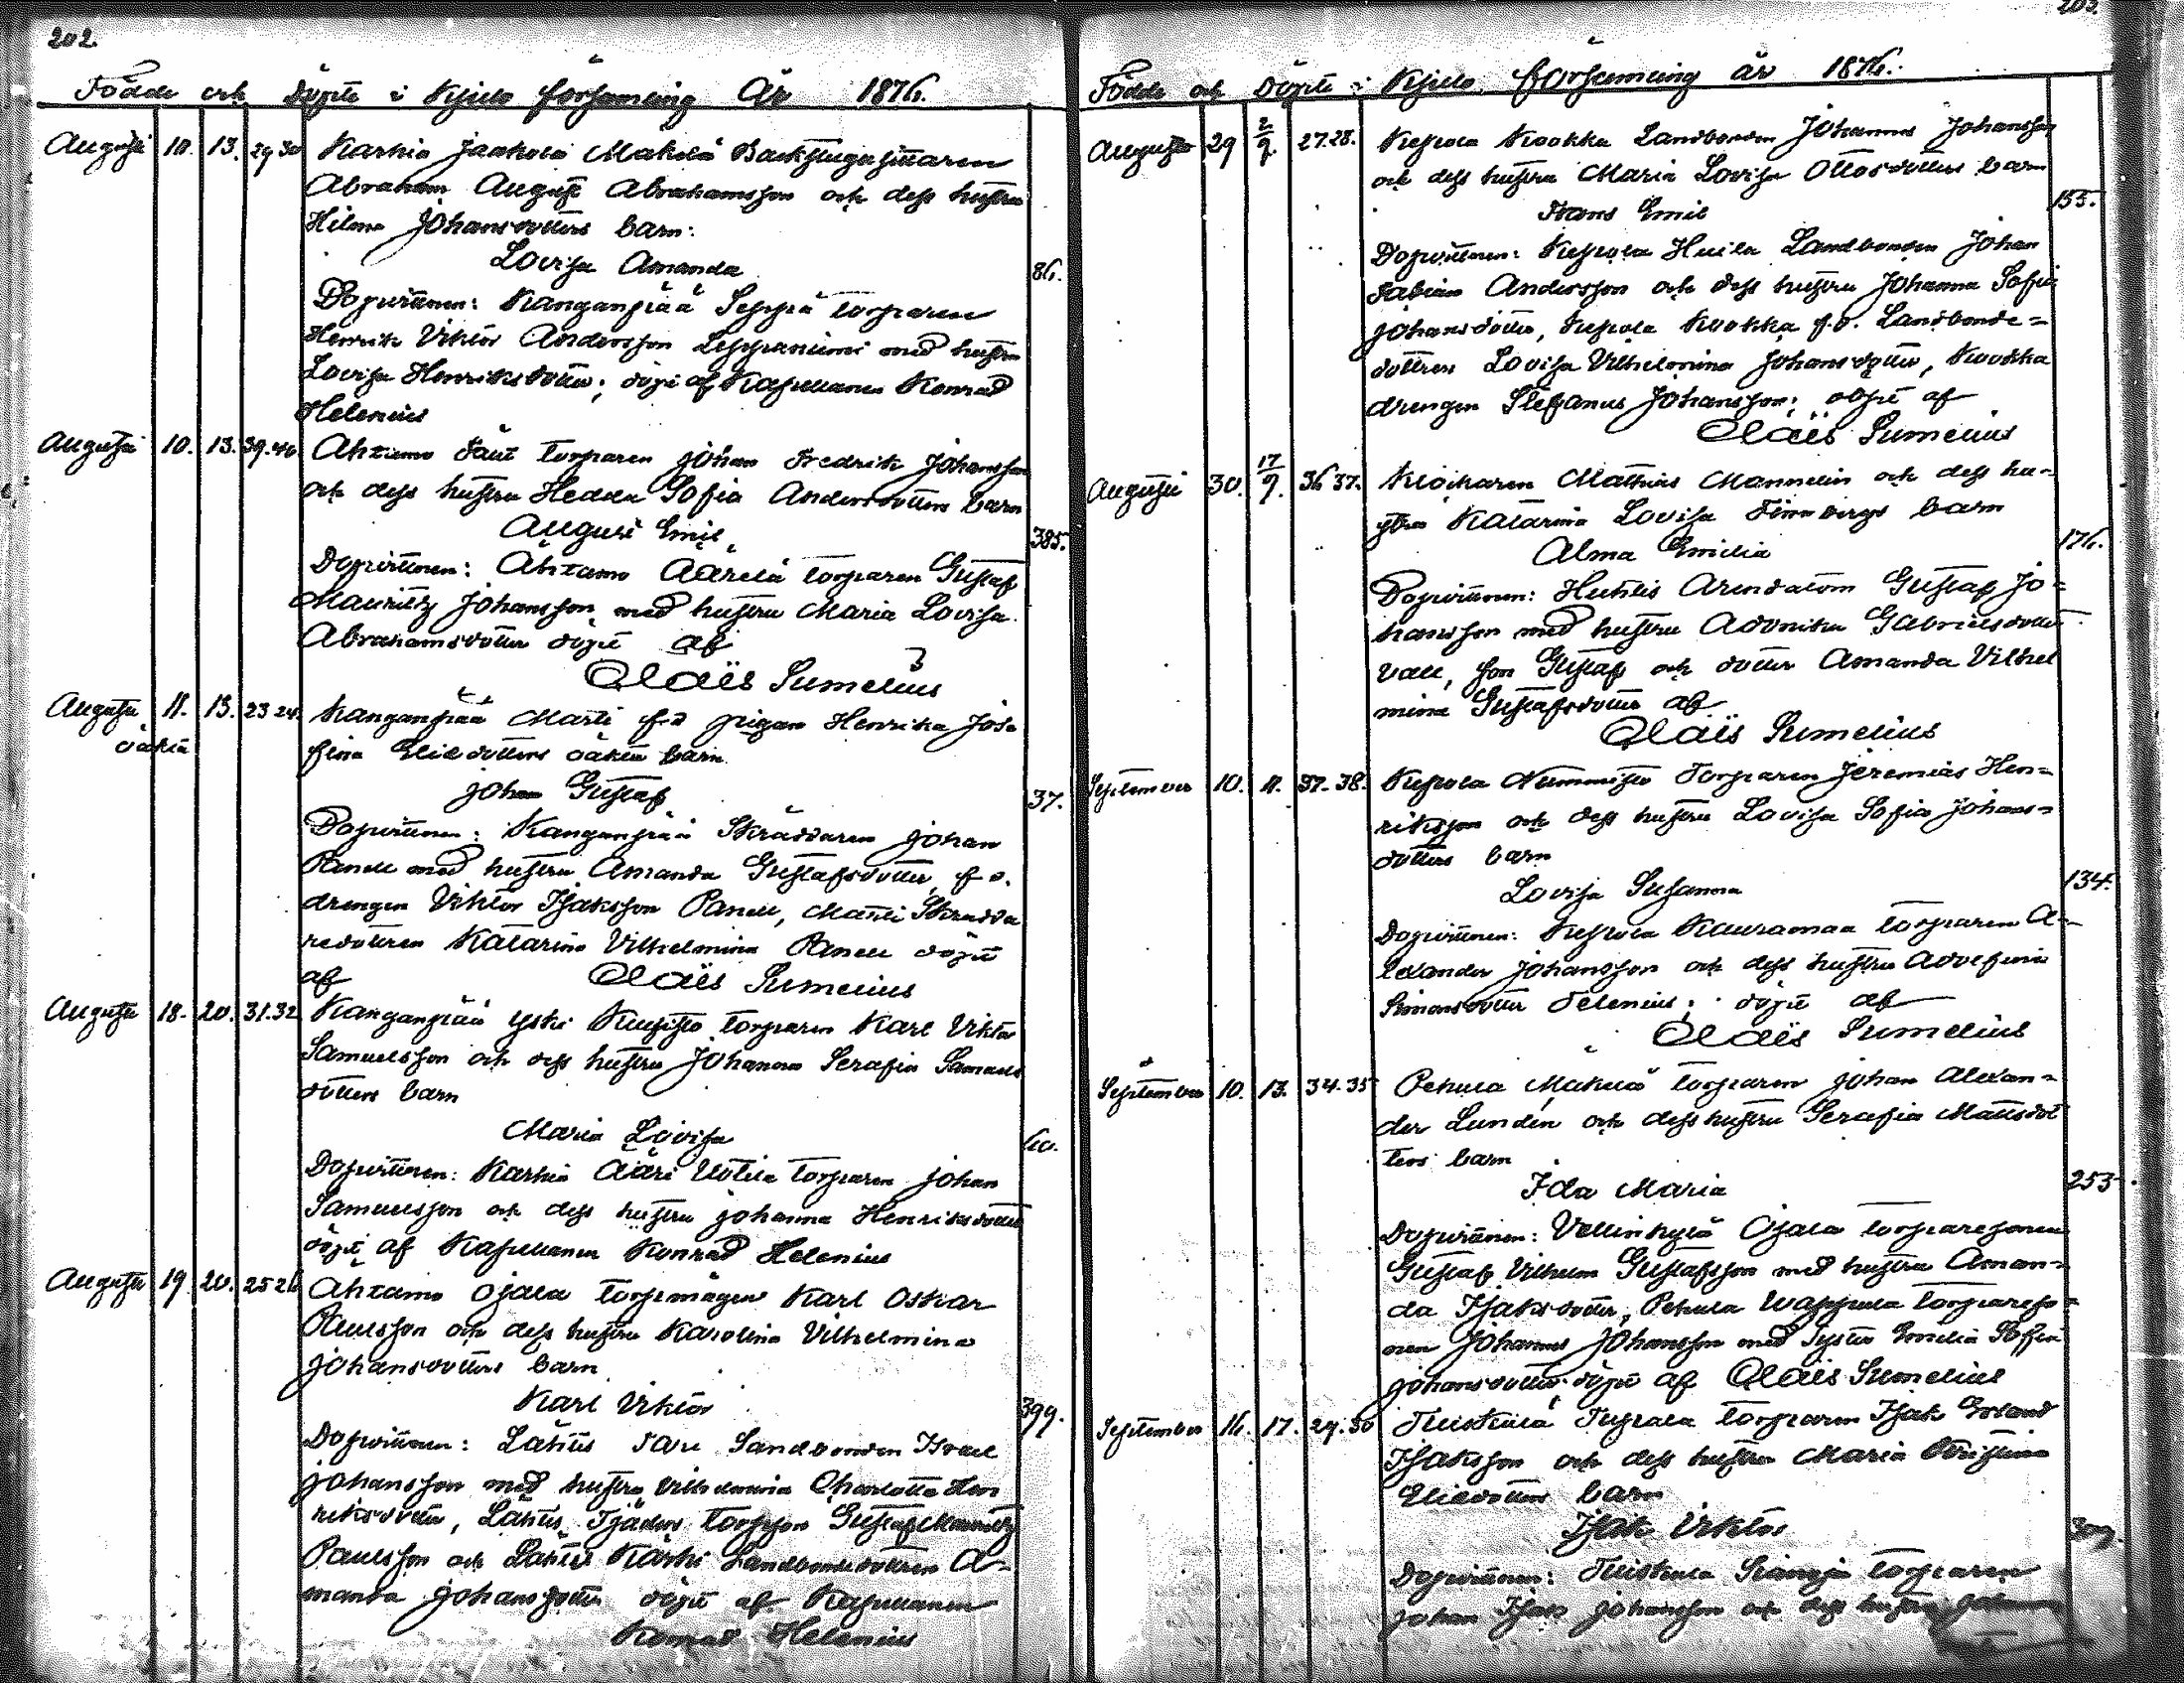 202.
Födde och Döpte i Kjulo församling År 1876.
Augusti 10. 13. 29 30 Karhia Jaakola Mäkelä Backstugusittaren
Abraham August Abrahamsson och dess hustru
Hilma Johansdotters barn:
Lovisa Amanda 86.
Dopvittnen: Kanganpää Seppä torparen
Henrik Viktor Andersson Leppäniemi med hustru
Lovisa Henriksdotter; döpt af Kapellanen Konrad
Helenius
Augusti 10. 13. 39.40 Ahtamo torparen Johan Fredrik Johansson
och dess hustru Hedda Sofia Andersdotters barn
August Emil 385.
Dopvittnen: Ahtamo Äärelä torparen Gustaf
Mauritz Johansson med hustru Maria Lovisa
Abrahamsdotter döpt af
Claës Sumelius
Augusti 11. 13. 23 24. Kanganpää Martti f.d. pigan Henrika Jose
fina Eliedotters oäkta barn
oäkta
Johan Gustaf 37.
Dopvittnen: Kanganpää Skräddaren Johan
Panell med hustru Amanda Gustafsdotter, f.d.
drengen Viktor Isaksson Panell, Martti Skrädda
redottren Katarina Vilhelmina Panell döpt
af Claës Sumelius
Augusti 18. 20. 31.32 Kanganpää Yski Kuusisto torparen Karl Viktor
Samuelsson och dess hustru Johanna Serafia Samuels
dotters barn
Maria Lovisa 60.
Dopvittnen: Karhia Ääri Uotila torparen Johan
Samuelsson och dess hustru Johanna Henriksdotter
döpt af Kapellanen Konrad Helenius
Augusti 19. 20. 25 26 Ahtamo Ojala torpmågen Karl Oskar
Paulsson och dess hustru Karolina Vilhelmina
Johansdotters barn
Karl Viktor 399.
Dopvittnen: Lähtis Landbonden Israel
Johansson med hustru Vilhelmina Charlotta Hen
riksdotter, Lähtis Tjäder torpson Gustaf Mauritz
Paulsson och Lähtis Kärki Landbondedottren A-
manda Johansdotter döpt af Kapellanen
Konrad Helenius
203.
Födde och Döpte i Kjulo församling år 1876.
Augusti 29 2/9. 27.28. Kepola Kookka Landbonden Johannes Johansson
och dess hustru Maria Lovisa Ottosdotters barn
Frans Emil 155.
Dopvittnen: Kepola Huila Landbonden Johan
Fabian Andersson och dess hustru Johanna Sofia
Johansdotter, Kepola Kookka f.d. Landbonde-
dottren Lovisa Vilhelmina Johansdotter, Kookka
drengen Stefanus Johansson; döpt af
Claës Sumelius
Augusti 30. 17/9. 36 37. Klockaren Mathias Mannelin och dess hu-
stru Katarina Lovisa Finnbergs barn
Alma Emilia 176.
Dopvittnen: Huhtis Arendatorn Gustaf Jo-
hansson med hustru Adonika Gabrielsdotter
Vall, son Gustaf och dotter Amanda Vilhel
mina Gustafsdotter af
Claës Sumelius
September 10. 11. 37-38. Kepola Nummisto Torparen Jeremias Hen-
riksson och dess hustru Lovisa Sofia Johans-
dotters barn
Lovisa Susanna 134.
Dopvittnen: Kepola Kauramaa torparen A-
lexander Johansson och dess hustru Adolfina
Simonsdotter Telenius; döpt af
Claës Sumelius
September 10. 13. 34.35 Pehula Mäkelä torparen Johan Alexan-
der Lundén och dess hustru Serafia Mattsdot
ters barn
Ida Maria 253
Dopvittnen: Vellinkylä Ojala torparesonen
Gustaf Vilhelm Gustafsson med hustru Aman-
da Isaksdotter, Pehula Wappula torpareso-
nen Johannes Johansson med syster Emilia Sofia
Johansdotter döpt af Claës Sumelius
September 16. 17. 29.30 Tuiskula Tupala torparen Isak Erland
Isaksson och dess hustru Maria Kristina
Eliedotters barn
Isak Viktor
Dopvittnen: Tuiskula torparen
Johan Isak Johansson och dess hustru